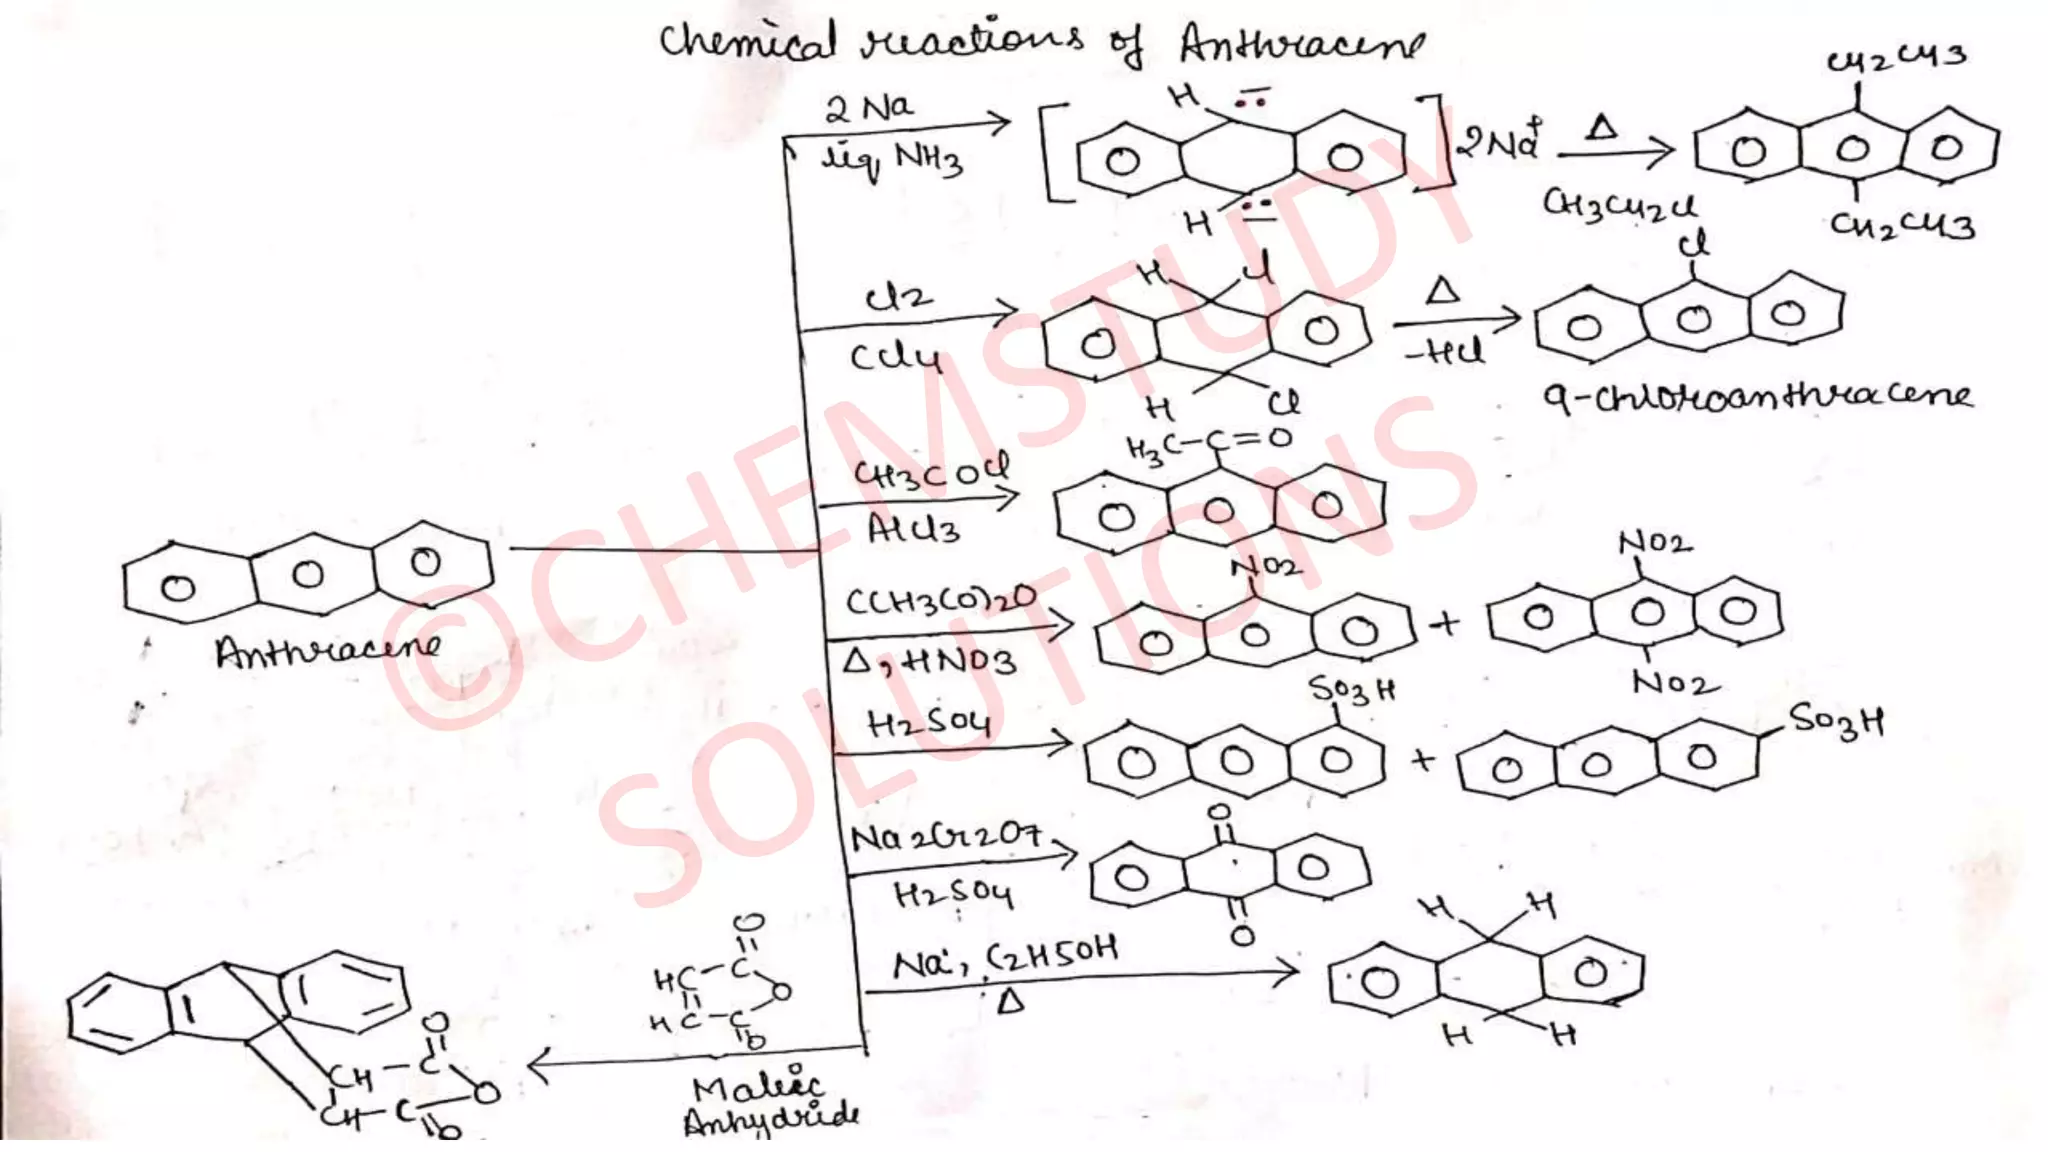 Chemical reactions of Anthracene
2 Na
liq NH3
H
H
2Na+
Δ
CH3CH2Cl
CH2CH3
CH2CH3
Cl2
CCl4
H Cl
H Cl
Δ
-HCl
Cl
9-chloroanthracene
CH3COCl
AlCl3
H3C-C=O
Anthracene
(CH3CO)2O
Δ, HNO3
NO2
+
NO2
NO2
H2SO4
SO3H
+
SO3H
Na2Cr2O7
H2SO4
O
O
Na, C2H5OH
Δ
H H
H H
O
HC-C
O
HC-C
O
Maleic
Anhydride
O
CH-C
O
CH-C
O
©CHEMSTUDY
SOLUTIONS